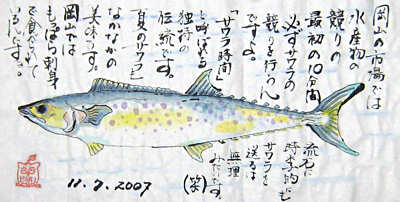 岡山の市場では
水産物の
競りの
最初の10分間
必ずサワラの
競りを行うん
ですよ。
「サワラ時間」
と呼ばれる
独特の
伝統です。
夏のサワラも
なかなかの
美味です。
岡山では
もっぱら刺身
で食べられて
いるんです。
流石に
時季的に
サワラを
送るは
無理
みたいです。
(笑)
11.7.2007